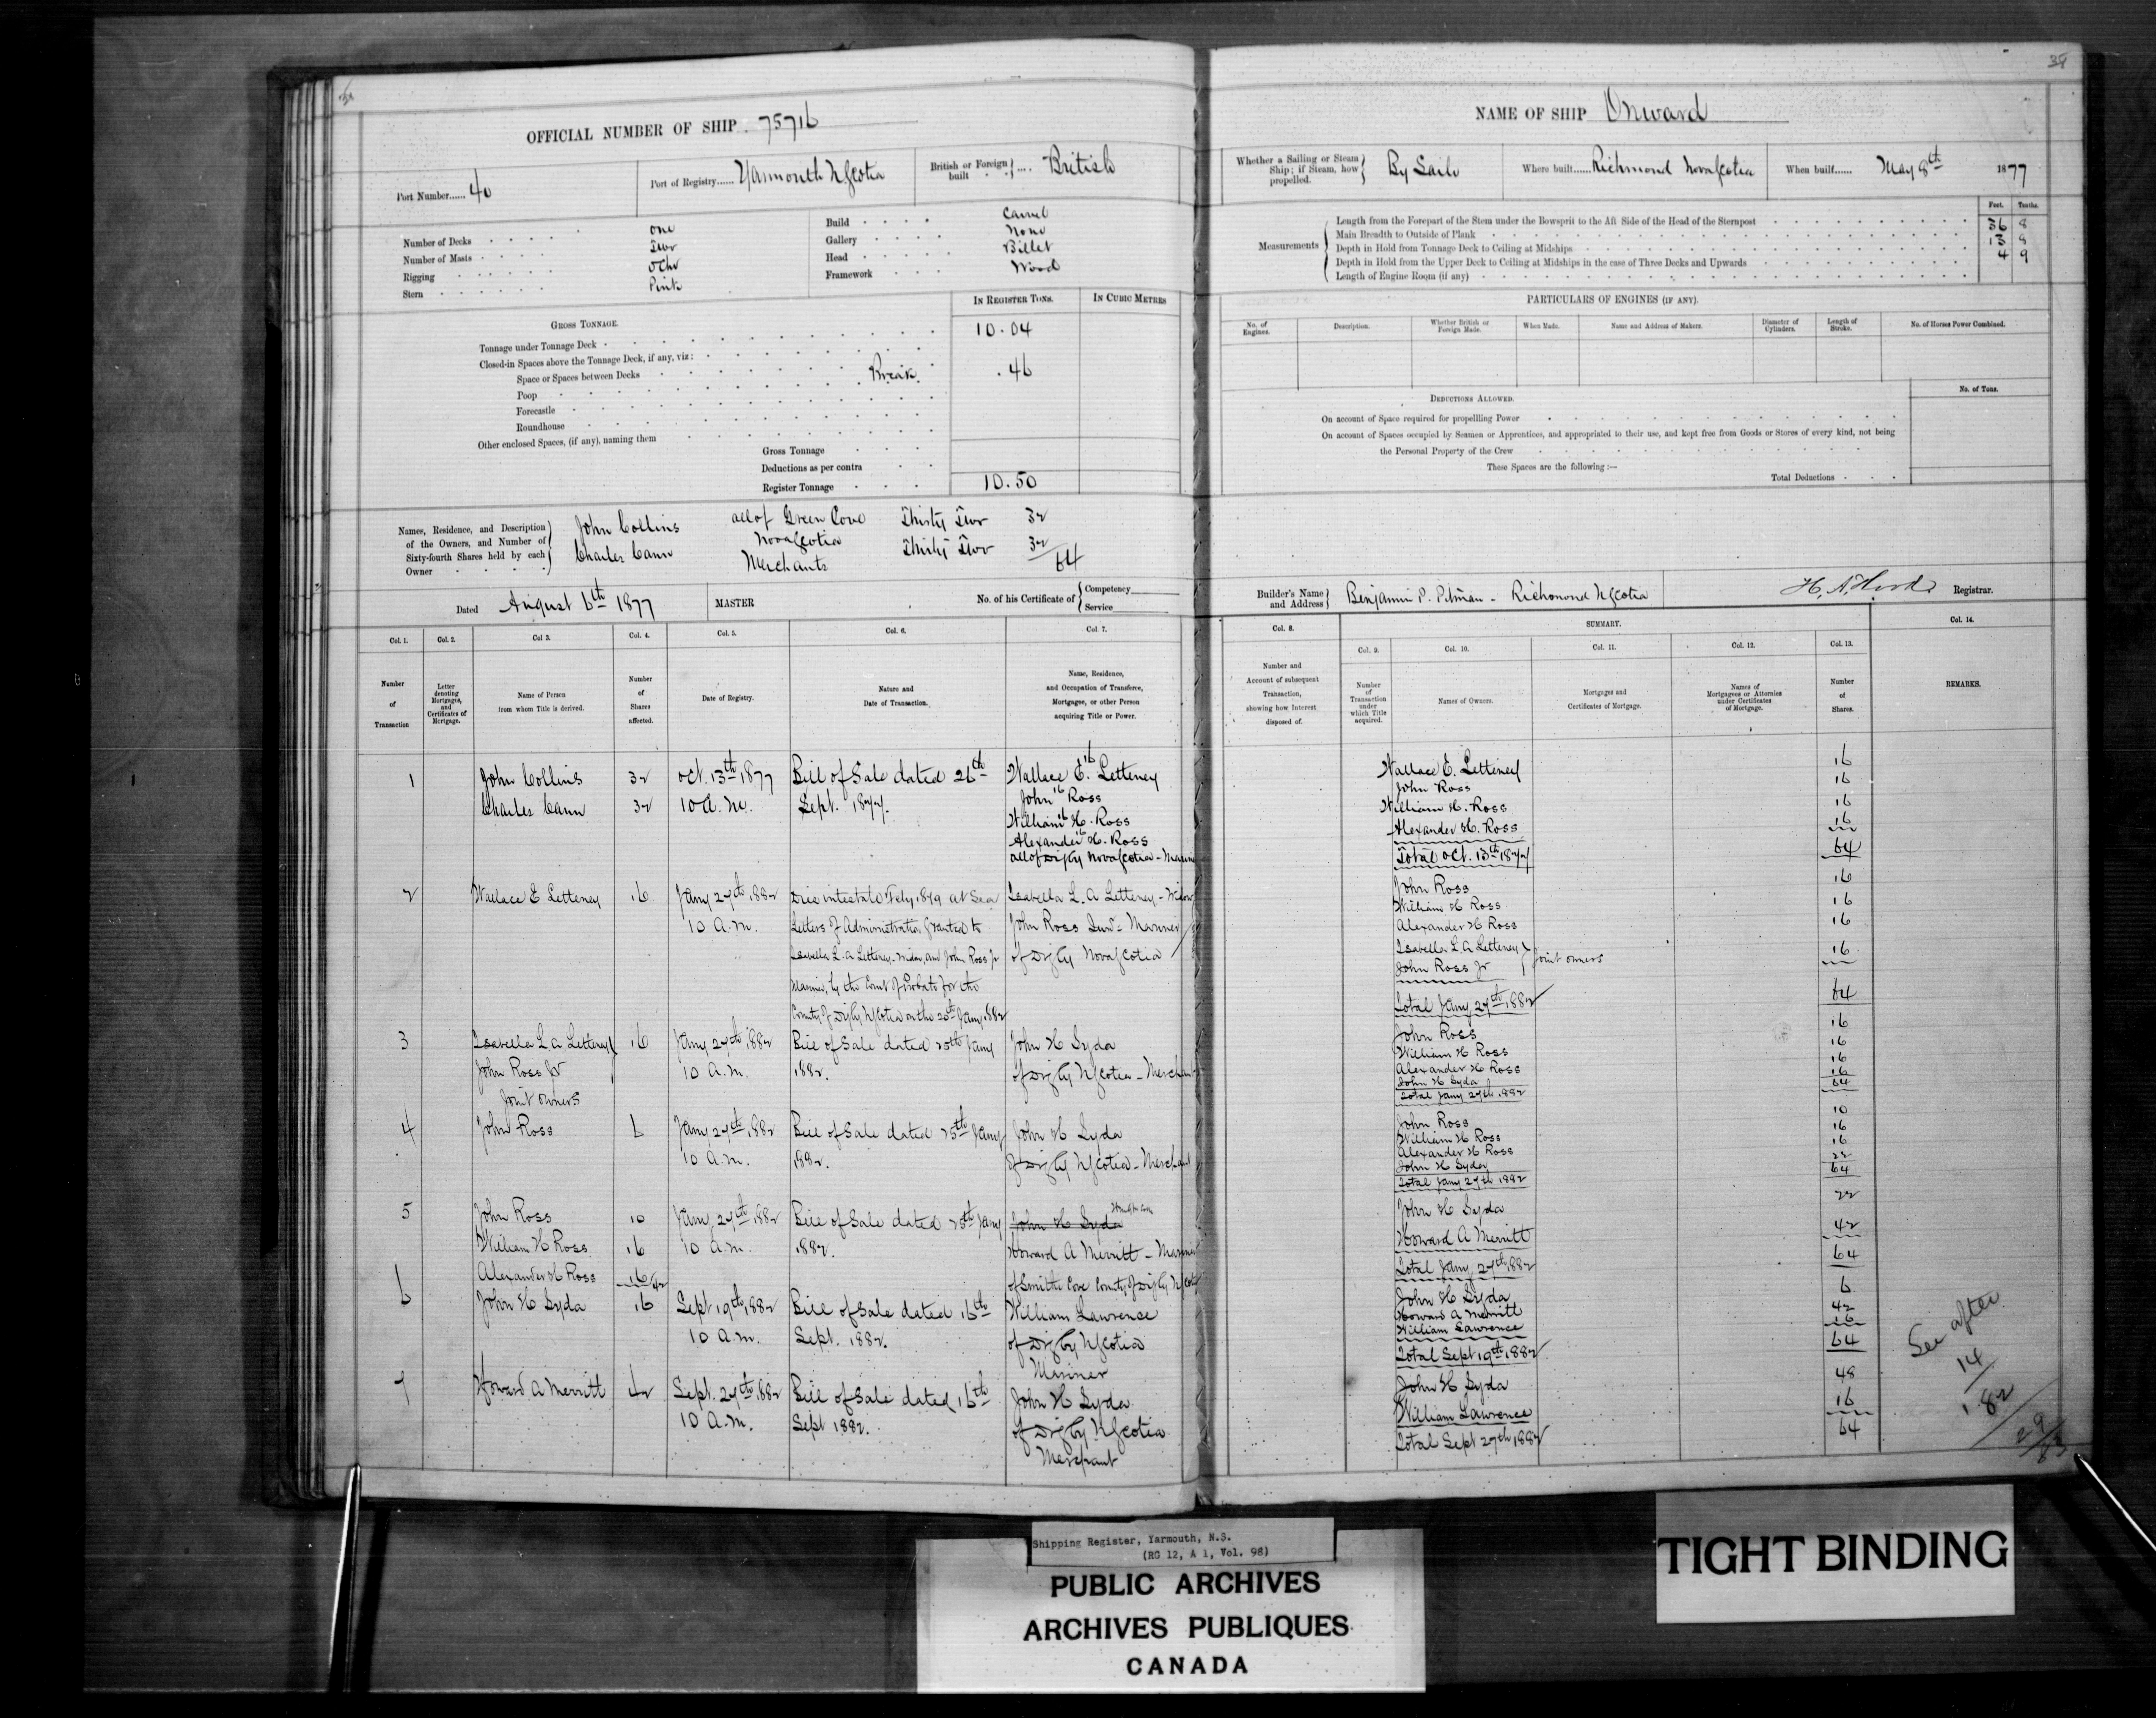 38
OFFICIAL NUMBER OF SHIP 75716
Port Number...... 40
Port of Registry...... Yarmouth NScotia
British or Foreign built .... British
Number of Decks One
Number of Masts Two
Rigging Schr
Stern Pink
Build Carvel
Gallery None
Head Billet
Framework Wood
IN REGISTER TONS.
IN CUBIC METRES
GROSS TONNAGE.
Tonnage under Tonnage Deck 10.04
Closed-in Spaces above the Tonnage Deck, if any, viz:
Space or Spaces between Decks Break .46
Poop
Forecastle
Roundhouse
Other enclosed Spaces, (if any), naming them
Gross Tonnage
Deductions as per contra
Register Tonnage 10.50
Names, Residence, and Description
of the Owners, and Number of
Sixty-fourth Shares held by each
Owner
John Collins all of Green Cove Thirty Two 32
Charles Cann Nova Scotia Thirty Two 32
Merchants 64
Dated August 6th 1877
MASTER
No. of his Certificate of Competency
Service
Col. 1.
Col. 2.
Col 3.
Col. 4.
Col. 5.
Col. 6.
Col. 7.
Number of Transaction
Letter denoting Mortgages, and Certificates of Mortgage.
Name of Person from whom Title is derived.
Number of Shares affected.
Date of Registry.
Nature and Date of Transaction.
Name, Residence, and Occupation of Transferee, Mortgagee, or other Person acquiring Title or Power.
1 John Collins 32 Oct. 13th 1877 Bill of Sale dated 26th Wallace E. Letteney 16
Charles Cann 32 10 A.M. Sept. 1877. John Ross 16
William H. Ross 16
Alexander H. Ross 16
all of Digby Nova Scotia - Mariners
2 Wallace E Letteney 16 Jany 27th 1882 Died intestate Feby 1879 at Sea Isabella L. A Letteney - Widow
10 A.M. Letters of Administration Granted to John Ross Junr - Mariner
Isabella L. A Letteney - Widow, and John Ross Jr of Digby Nova Scotia
Mariner, by the Court of Probate for the
County of Digby NScotia on the 20th Jany 1882
3 Isabella L A Letteney 16 Jany 27th 1882 Bill of Sale dated 25th Jany John H Syda
John Ross Jr 10 A.M. 1882. of Digby NScotia - Merchant
Joint Owners
4 John Ross 6 Jany 27th 1882 Bill of Sale dated 25th Jany John H Syda
10 A.M. 1882. of Digby NScotia - Merchant
5 John Ross 10 Jany 27th 1882 Bill of Sale dated 25th Jany John H Syda
William H Ross 16 10 A.M. 1882. Howard A Merritt - Mariner
Alexander H Ross 16 42 of Smiths Cove County of Digby NScotia
6 John H Syda 16 Sept 19th 1882 Bill of Sale dated 16th William Lawrence
10 A.M. Sept. 1882. of Digby NScotia
Mariner
7 Howard A Merritt 42 Sept. 27th 1882 Bill of Sale dated 16th John H Syda
10 A.M. Sept 1882. of Digby NScotia
Merchant
38
NAME OF SHIP Onward
Whether a Sailing or Steam Ship; if Steam, how propelled. By Sails
Where built...... Richmond Nova Scotia
When built...... May 8th 1877
Feet. Tenths.
Measurements
Length from the Forepart of the Stem under the Bowsprit to the Aft Side of the Head of the Sternpost 36 8
Main Breadth to Outside of Plank 13 8
Depth in Hold from Tonnage Deck to Ceiling at Midships 4 9
Depth in Hold from the Upper Deck to Ceiling at Midships in the case of Three Decks and Upwards
Length of Engine Room (if any)
PARTICULARS OF ENGINES (IF ANY).
No. of Engines.
Description.
Whether British or Foreign Made.
When Made.
Name and Address of Makers.
Diameter of Cylinders.
Length of Stroke.
No. of Horses Power Combined.
No. of Tons.
DEDUCTIONS ALLOWED.
On account of Space required for propelling Power
On account of Spaces occupied by Seamen or Apprentices, and appropriated to their use, and kept free from Goods or Stores of every kind, not being
the Personal Property of the Crew
These Spaces are the following :—
Total Deductions
Builder's Name and Address Benjamin P. Pitman - Richmond NScotia
Registrar.
SUMMARY.
Col. 8.
Col. 9.
Col. 10.
Col. 11.
Col. 12.
Col. 13.
Col. 14.
Number and Account of subsequent Transaction, showing how Interest disposed of.
Number of Transaction under which Title acquired.
Names of Owners.
Mortgages and Certificates of Mortgage.
Names of Mortgagees or Attornies under Certificates of Mortgage.
Number of Shares.
REMARKS.
Wallace E. Letteney 16
John Ross 16
William H. Ross 16
Alexander H. Ross 16
Total Oct. 13th 1877 64
John Ross 16
William H Ross 16
Alexander H Ross 16
Isabella L. A. Letteney
John Ross Jr Joint Owners 16
Total Jany 27th 1882 64
John Ross 16
William H Ross 16
Alexander H Ross 16
John H Syda 16
Total Jany 27th 1882 64
John Ross 10
William H Ross 16
Alexander H Ross 16
John H Syda 22
Total Jany 27th 1882 64
John H Syda 22
Howard A Merritt 42
Total Jany 27th 1882 64
John H Syda 6
Howard A Merritt 42
William Lawrence 16
Total Sept 19th 1882 64
John H Syda 48
William Lawrence 16
Total Sept 27th 1882 64
See after
14/
182/
29/83
Shipping Register, Yarmouth, N.S.
(RG 12, A 1, Vol. 98)
PUBLIC ARCHIVES
ARCHIVES PUBLIQUES
CANADA
TIGHT BINDING